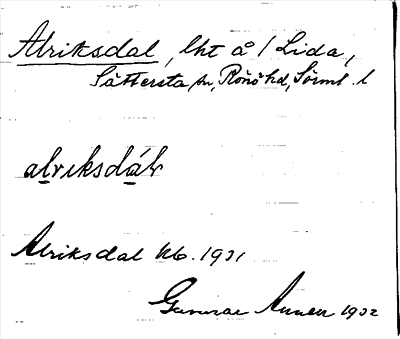 Alriksdal, lht å / Lida,
Sättersta sn, Rönö hd, Sörml. l
alriksdál
Alriksdal Kb. 1931
Gunnar Annell 1932